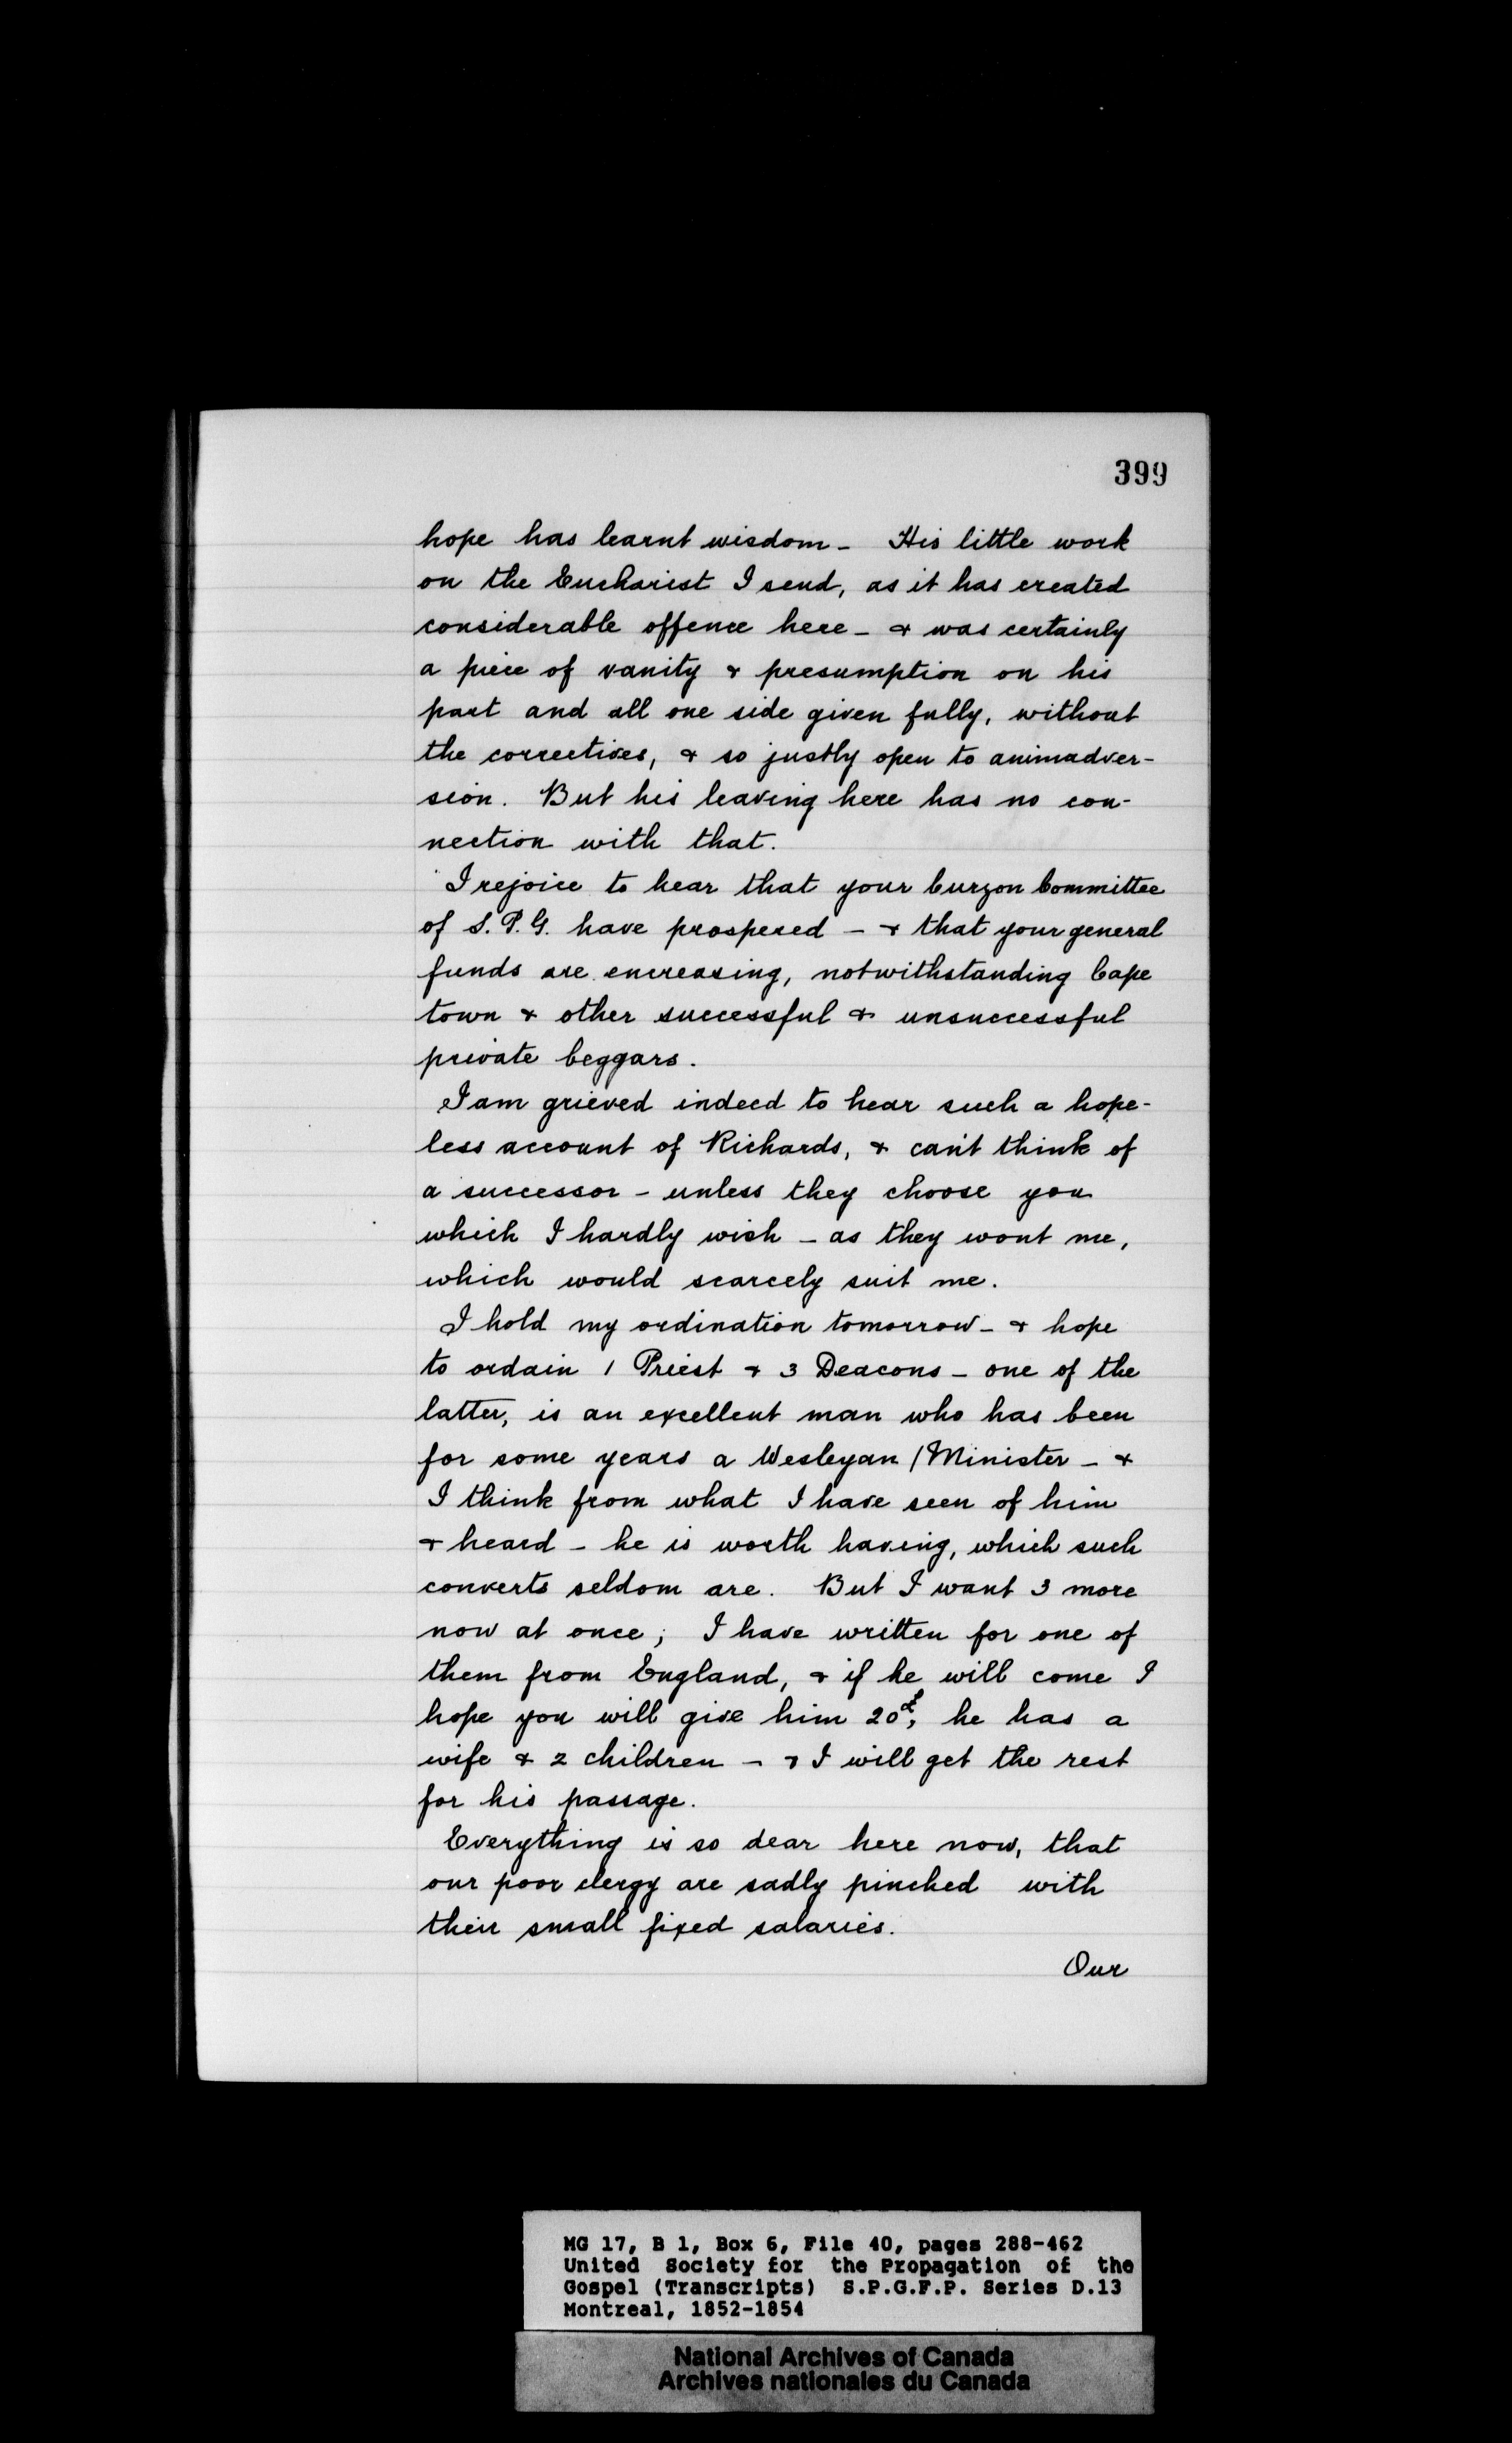 399
hope has learnt wisdom - His little work
on the Eucharist I send, as it has created
considerable offence here - & was certainly
a piece of vanity & presumption on his
part and all one side given fully, without
the correctives, & so justly open to animadver-
sion. But his leaving here has no con-
nection with that.
I rejoice to hear that your Curzon Committee
of S.P.G. have prospered - & that your general
funds are encreasing, notwithstanding Cape
town & other successful & unsuccessful
private beggars.
I am grieved indeed to hear such a hope-
less account of Richards, & can't think of
a successor - unless they choose you
which I hardly wish - as they wont me,
which would scarcely suit me.
I hold my ordination tomorrow - & hope
to ordain 1 Priest & 3 Deacons - one of the
latter, is an excellent man who has been
for some years a Wesleyan Minister - &
I think from what I have seen of him
& heard - he is worth having, which such
converts seldom are. But I want 3 more
now at once; I have written for one of
them from England, & if he will come I
hope you will give him 20£, he has a
wife & 2 children - & I will get the rest
for his passage.
Everything is so dear here now, that
our poor clergy are sadly pinched with
their small fixed salaries.
Our
MG 17, B 1, Box 6, File 40, pages 288-462
United Society for the Propagation of the
Gospel (Transcripts) S.P.G.F.P. Series D.13
Montreal, 1852-1854
National Archives of Canada
Archives nationales du Canada